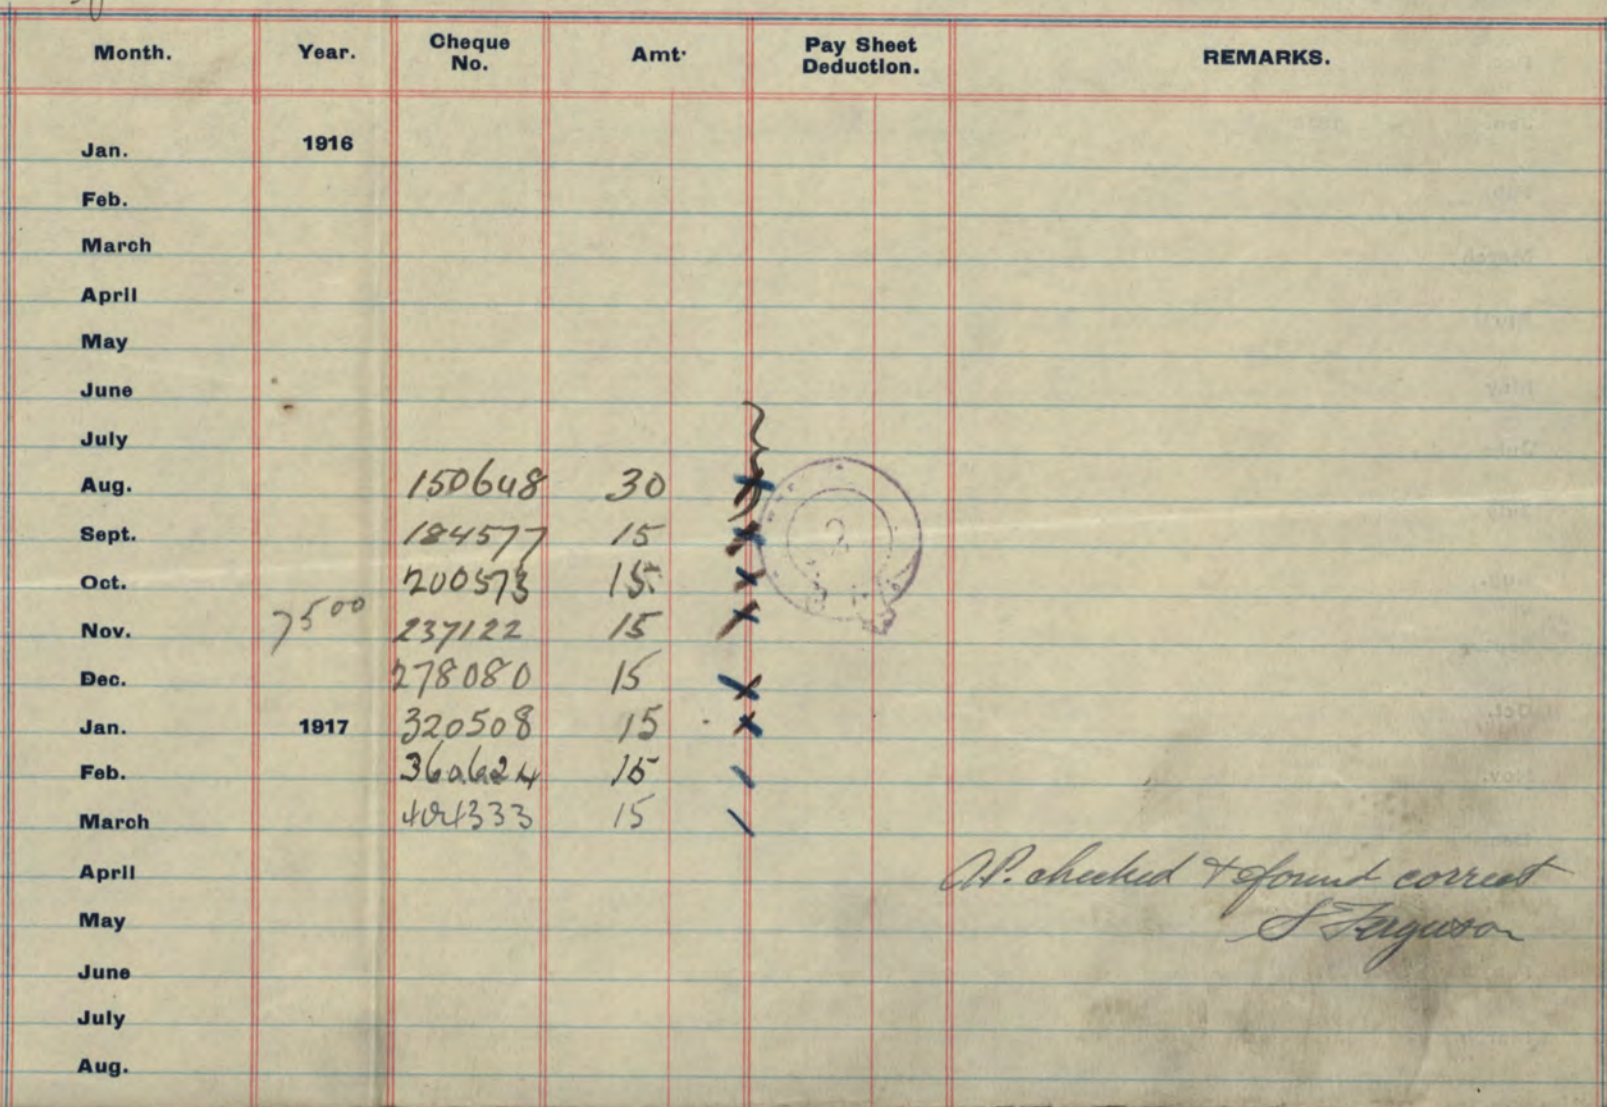 Month. Year. Cheque No. Amt. Pay Sheet Deduction. REMARKS.
Jan. 1916
Feb.
March
April
May
June
July
Aug. 150648 30
Sept. 184577 15
Oct. 200573 15
7500
Nov. 237122 15
Dec. 278080 15
Jan. 1917 320508 15
Feb. 360624 15
March 404333 15
April A.P. checked & found correct
May S Ferguson
June
July
Aug.